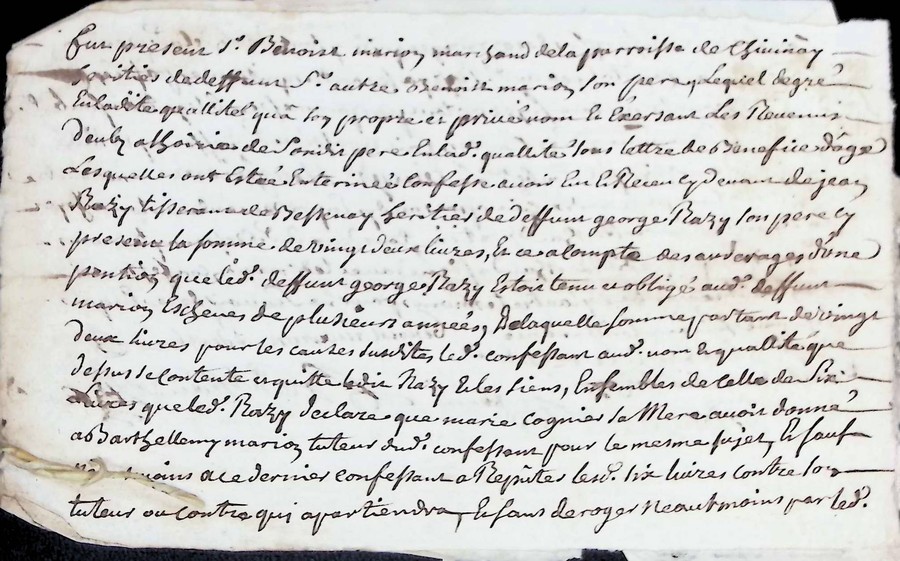 Fut present Sr. Benoist marion marchand de la parroisse de Chivinay
heritier de deffunt Sr. autre benoist marion son pere, Lequel de gré
En ladite quallité qu'a son propre et privé nom Et Exersant Les Revenus
de sondit pere En lad. quallité sous lettre de Benefice d'age
Lesquelles ont Estée Enterinée Confesse avoir Eu et Receu Cy devant de jean
Razy tisserant de Bessenay heritier de deffunt george Razy son pere Cy
present la somme de vingt deux livres, Et ce a Compte des arrerages d'une
pention que led. deffunt george Razy Estoit tenu et obligé aud. deffunt
marion Escheues de plusieurs années, De laquelle somme partant de vingt
deux livres pour les causes susdites led. confessant aud. nom Et quallité que
dessus se contente et quitte ledit Razy Et les siens, Ensembles de Celle de Six
Livres que led. Razy declare que marie cognier sa Mere avoit donné
a Barthellemy marion tuteur dud. confessant pour le mesme sujet, Et sauf
moins a ce dernier confessant a Repeter lesd. six livres contre son
tuteur ou contre qui apartiendra, Et sans deroger Neautmoins par led.